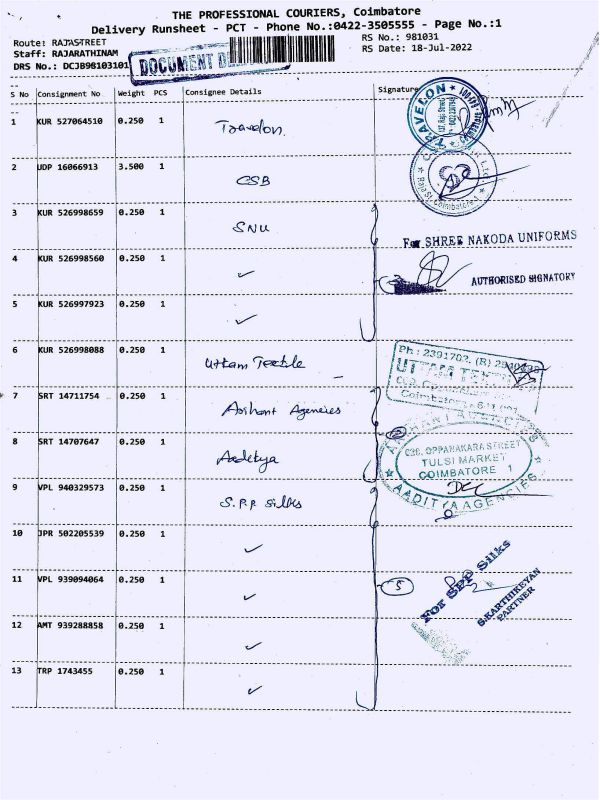 THE PROFESSIONAL COURIERS, Coimbatore
Delivery Runsheet - PCT - Phone No.:0422-3505555 - Page No.:1
Route: RAJASTREET RS No.: 981031
Staff: RAJARATHINAM RS Date: 18-Jul-2022
DRS No.: DCJB98103101
DOCUMENT
S No Consignment No Weight PCS Consignee Details Signature
1 KUR 527064510 0.250 1 Travelon
TRAVELON
2 UDP 16066913 3.500 1 CSB
3 KUR 526998659 0.250 1 SNU
For SHREE NAKODA UNIFORMS
4 KUR 526998560 0.250 1 ✓
AUTHORISED SIGNATORY
5 KUR 526997923 0.250 1 ✓
6 KUR 526998088 0.250 1 Uttam Textile
Ph: 2391702, (R)
7 SRT 14711754 0.250 1 Arihant Agencies
Coimbatore
ARIHANT AGENCIES
8 SRT 14707647 0.250 1 Aaditya
OPPANAKARA STREET
TULSI MARKET
COIMBATORE 1
AADITYA AGENCIES
9 VPL 940329573 0.250 1 S.P.P Silks
10 JPR 502205539 0.250 1 ✓
11 VPL 939094064 0.250 1 ✓ 5
For SPP Silks
S.KARTHIKEYAN
PARTNER
12 AMT 939288858 0.250 1 ✓
13 TRP 1743455 0.250 1 ✓